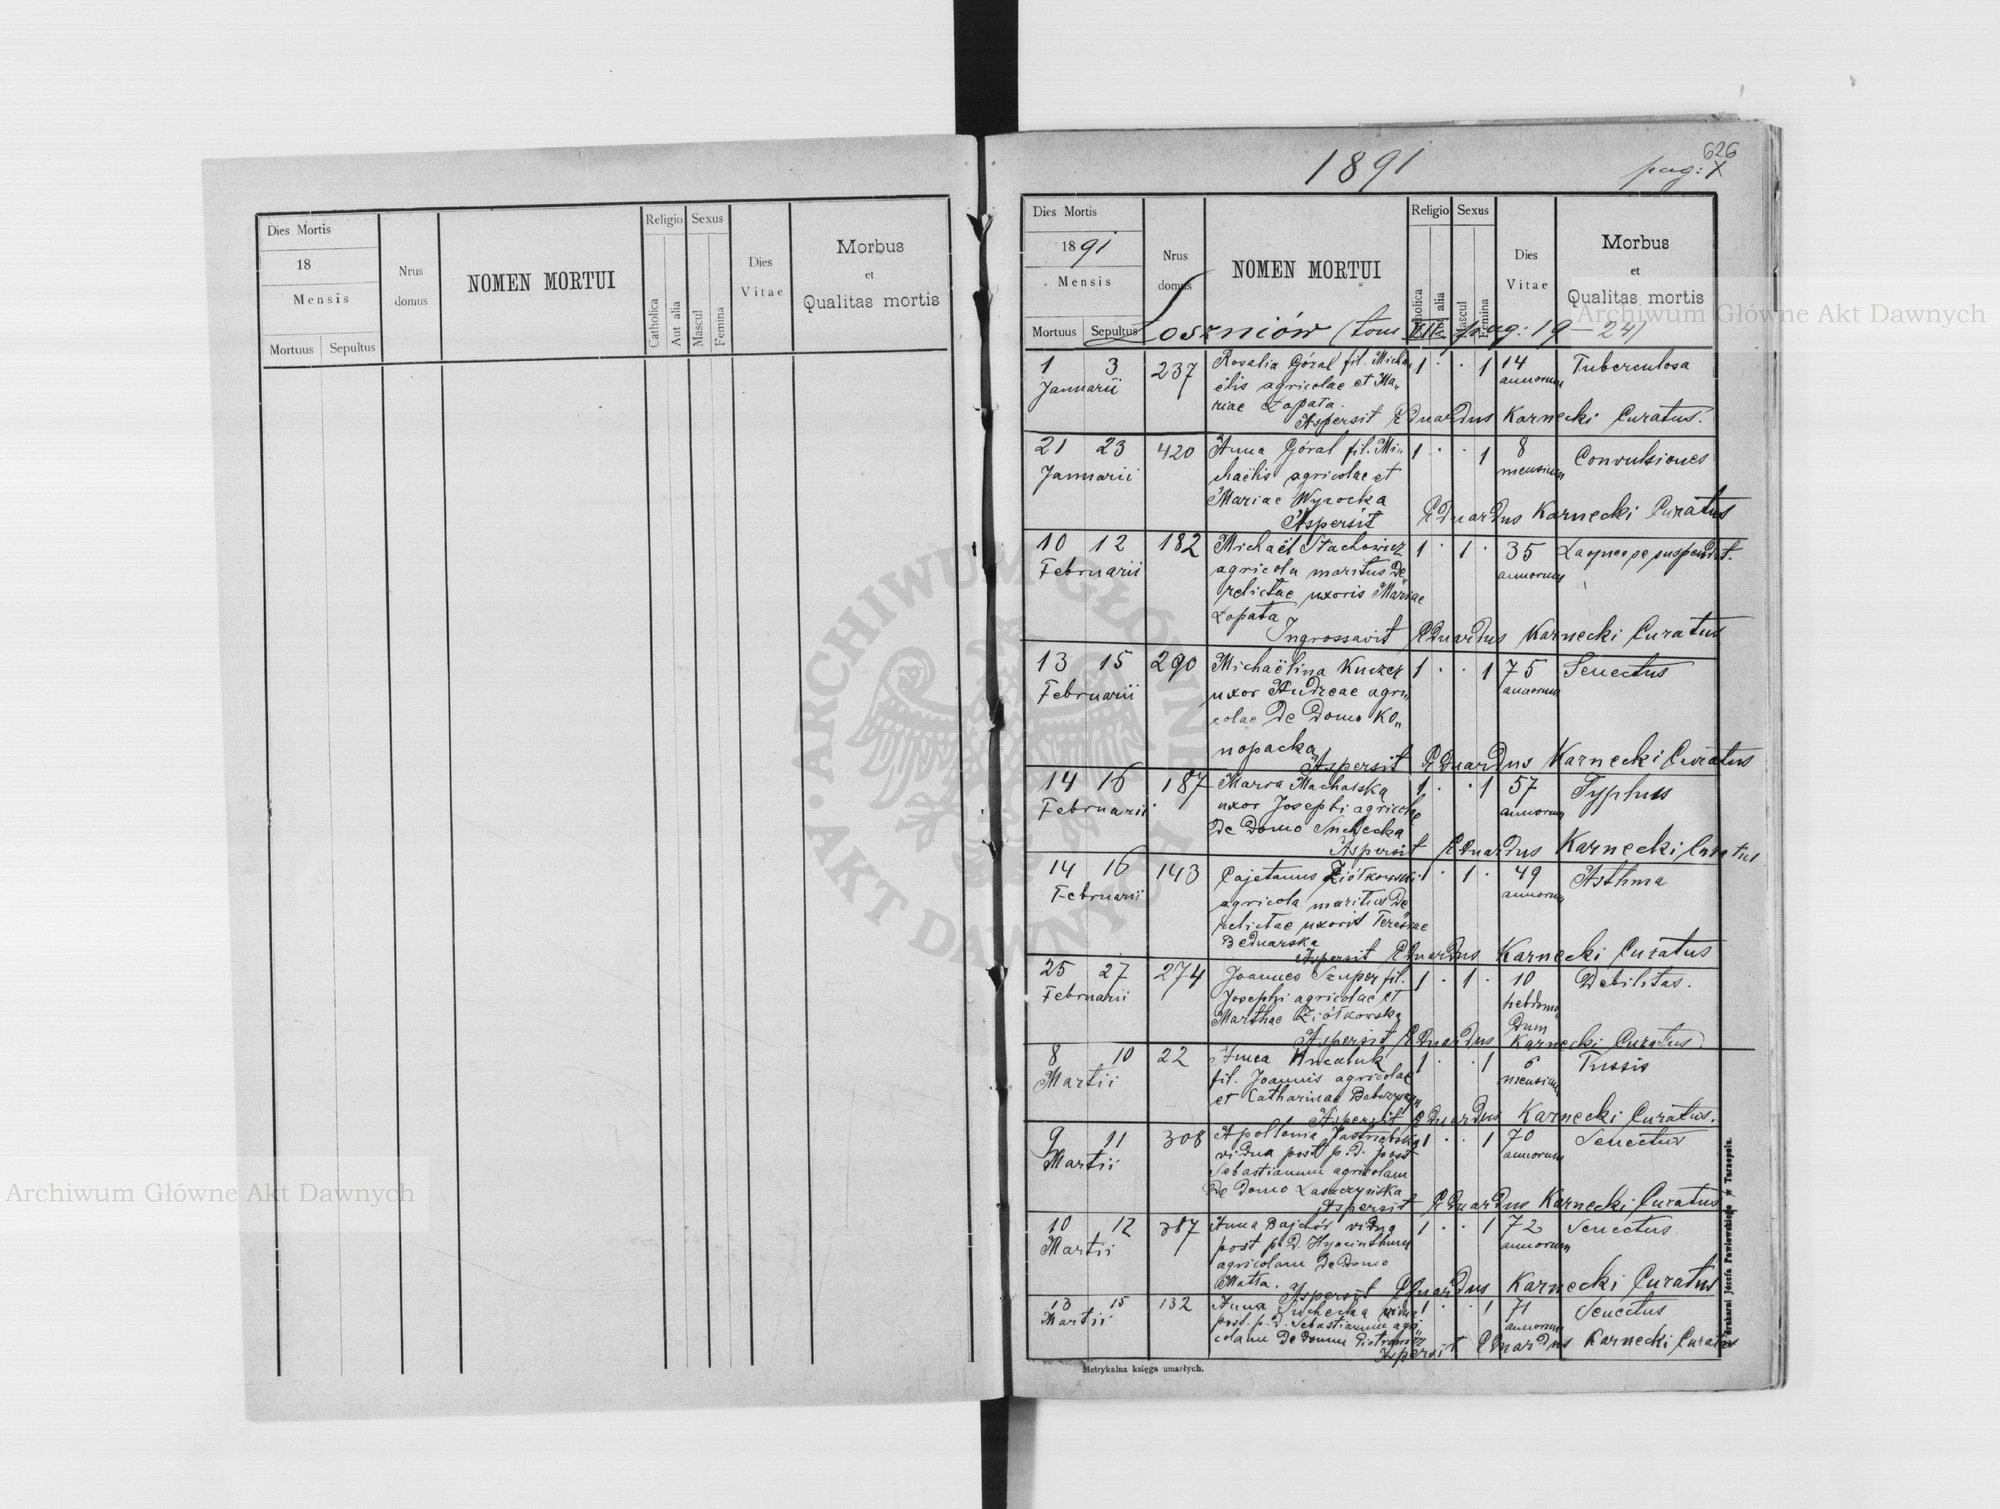 Dies Mortis
18
Mensis
Mortuus Sepultus
Nrus domus
NOMEN MORTUI
Religio
Catholica
Aut alia
Sexus
Mascul
Femina
Dies Vitae
Morbus
et
Qualitas mortis
1891
626
pag: X
Dies Mortis
1891
Mensis
Mortuus Sepultus
Nrus domus
NOMEN MORTUI
Religio
Catholica
Aut alia
Sexus
Mascul
Femina
Dies Vitae
Morbus
et
Qualitas mortis
Łoszniów (tom pag: 19-24)
1 3 237 Rosalia Góral fil. Micha„ 1 . . 1 14 Tuberculosa
Januarii ëlis agricolae et Ma„ annorum
riae Łopata.
Aspersit Eduardus Karnecki Curatus.
21 23 420 Anna Góral fil. Mi„ 1 . . 1 8 Convulsiones
Januarii chaëlis agricolae et mensium
Mariae Wysocka
Aspersit Eduardus Karnecki Curatus
10 12 182 Michaël Stachowicz 1 . 1 . 35 Laqueo se suspendit.
Februarii agricola maritus de„ annorum
relictae uxoris Mariae
Łopata
Ingrossavit Eduardus Karnecki Curatus
13 15 290 Michaëlina Kuczer 1 . . 1 75 Senectus
Februarii uxor Andreae agri„ annorum
colae de domo Ko„
nopacka
Aspersit Eduardus Karnecki Curatus
14 16 187 Maria Machalska 1 . . 1 57 Typhus
Februarii uxor Josephi agricolae annorum
de domo Suchecka
Aspersit Eduardus Karnecki Curatus
14 16 143 Cajetanus Ziółkowski 1 . 1 . 49 Asthma
Februarii agricola maritus de„ annorum
relictae uxoris Teresiae
Bednarska
Aspersit Eduardus Karnecki Curatus
25 27 274 Joannes Szuper fil. 1 . 1 . 10 Debilitas.
Februarii Josephi agricolae et hebdoma„
Marthae Ziółkowska dum
Aspersit Eduardus Karnecki Curatus
8 10 22 Anna 1 . . 1 6 Tussis
Martii fil. Joannis agricolae mensium
et Catharinae
Aspersit Eduardus Karnecki Curatus.
9 11 308 Apollonia Jastrzębska 1 . . 1 70 Senectus
Martii vidua post p. d. post annorum
Sebastianum agricolam
de domo Laszczyńska
Aspersit Eduardus Karnecki Curatus
10 12 387 Anna vidua 1 . . 1 72 Senectus
Martii post p. d. Hyacinthum annorum
agricolam de domo
Matła.
Aspersit Eduardus Karnecki Curatus
13 15 132 Anna Suchecka vidua 1 . . 1 71 Senectus
Martii post. p. d. Sebastianum agri„ annorum
colam de domo Piotrowicz
Aspersit Eduardus Karnecki Curatus
Metrykalna księga umarłych.
Z drukarni Józefa Pawłowskiego w Tarnopolu.
ARCHIWUM GŁÓWNE AKT DAWNYCH
Archiwum Główne Akt Dawnych
Archiwum Główne Akt Dawnych